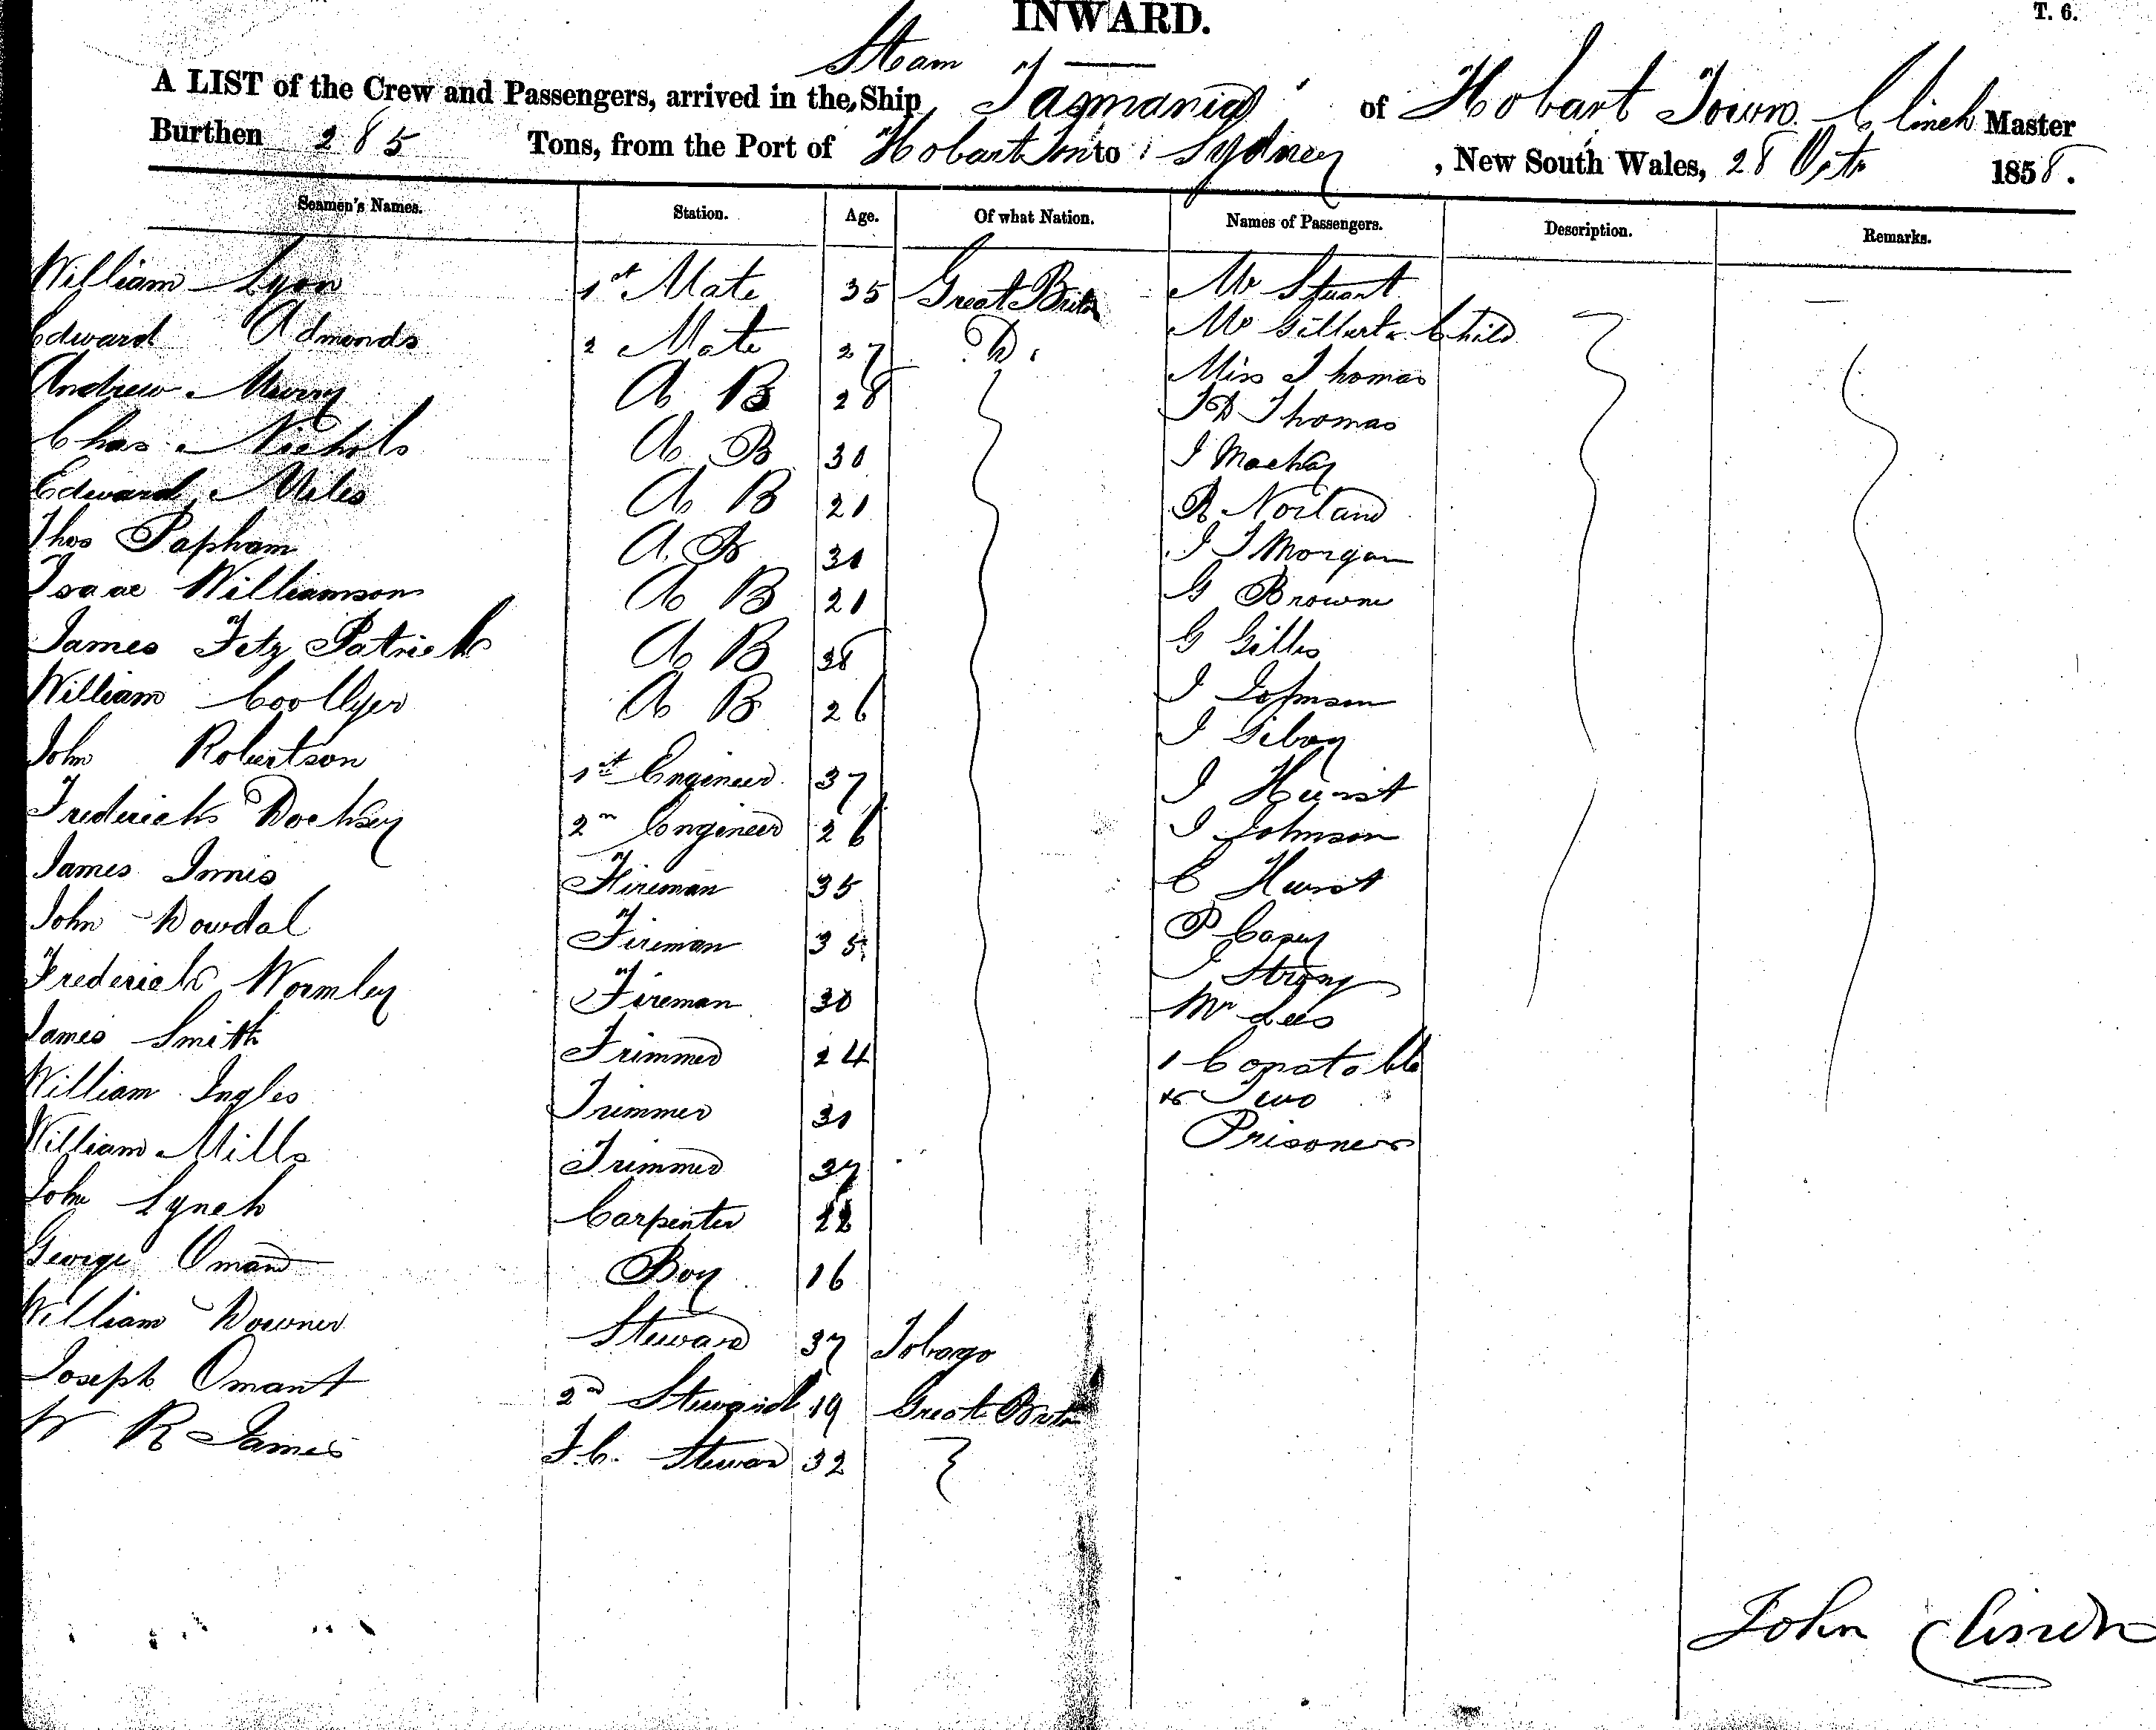 INWARD.
T. 6.
Steam
A LIST of the Crew and Passengers, arrived in the Ship Tasmania of Hobart Town Clinch Master
Burthen 285 Tons, from the Port of Hobart Ton to Sydney, New South Wales, 28 Octr 1858.
Seamen's Names. Station. Age. Of what Nation. Names of Passengers. Description. Remarks.
William Lyon 1st Mate 35 Great Britn Mr Stuart
Edward Admonds 2 Mate 27 Do. Mr Gilbert & Child
Andrew Murry A B 28 Miss Thomas
Chas Nichols A B 30 Thomas
Edward Miles A B 21 J Mackay
Thos Papham A B 30 R Norland
Isaac Williamson A B 21 J J Morgan
James Fitz Patrick A B 38 G Brown
William Coollyer A B 26 G Gillis
John Robertson 1st Engineer 37 J Johnson
Frederick Dochsey 2n Engineer 26 J Giboy
James Innis Fireman 35 J Hurst
John Dowdal Fireman 35 J Johnson
Frederick Wormley Fireman 30 C Hurst
James Smith Trimmer 24 P Casey
William Ingles Trimmer 30 J Strong
William Mills Trimmer 37 Mr Lees
John Lynch Carpenter 22 1 Constable
George Omand Boy 16 & Two
William Downer Steward 37 Tobago Prisoners
Joseph Omant 2nd Steward 19 Great Britn
W R James F.C. Steward 32
John Clinch